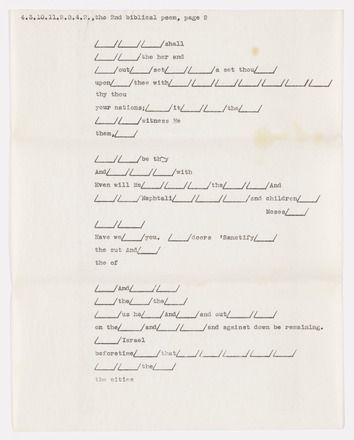 4.3.10.11.2.8.4.2.,the 2nd biblical poem, page 2
/____//____//____/shall
/____//____/the her end
/____/out/____/set/____//____/a set thou/____/
upon/____/thee with/____//____//____//____//____//____//____/
thy thou
your nations;/____/it/____//____/the/____/
/____//____/witness He
them,/____/
/____//____/be thy
And/____//____//____/with
Even will He/____//____//____/the/____//____/And
/____//____/Naphtali/____//____//____/and children/____/
Moses/____/
/____//____/
Have we/____/you. /____/doors 'Sanctify/____/
the cut And/____/
the of
/____/And/____//____/
/____/the/____/the/____/
/____/us he/____/And/____/and out/____//____/
on the/____/and/____//____/and against down be remaining.
/____/Israel
beforetime/____/that/____//____//____//____//____/
/____//____/the/____/
the cities